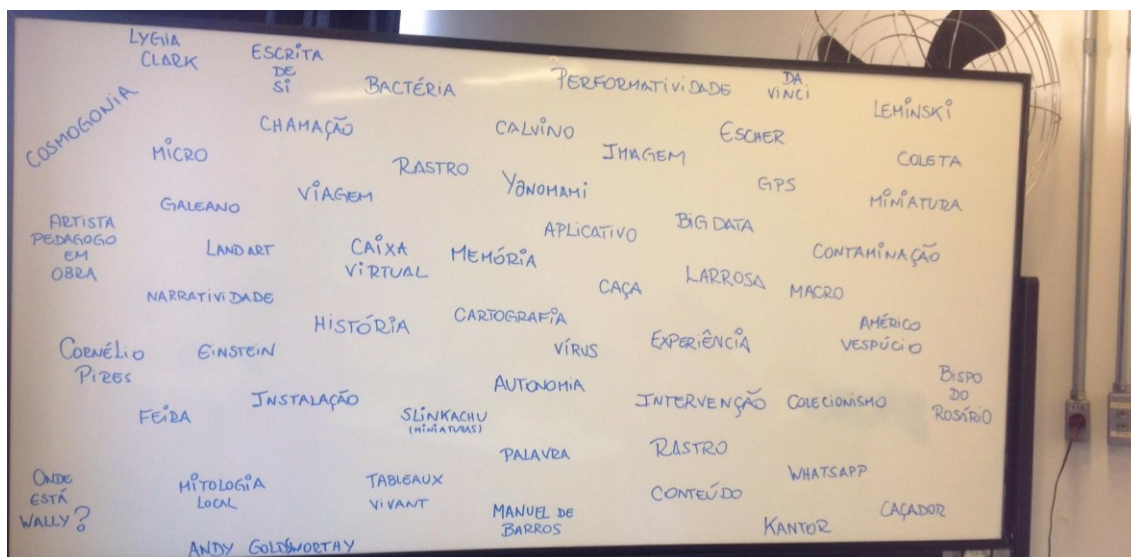 LYGIA
CLARK
ESCRITA
DE
SI
BACTÉRIA
PERFORMATIVIDADE
DA
VINCI
LEMINSKI
COSMOGONIA
CHAMAÇÃO
CALVINO
ESCHER
MICRO
RASTRO
IMAGEM
COLETA
GALEANO
VIAGEM
YANOMAMI
GPS
MINIATURA
ARTISTA
PEDAGOGO
EM
OBRA
LAND ART
CAIXA
VIRTUAL
MEMÓRIA
APLICATIVO
BIG DATA
CONTAMINAÇÃO
NARRATIVIDADE
CAÇA
LARROSA
MACRO
HISTÓRIA
CARTOGRAFIA
AMÉRICO
VESPÚCIO
CORNÉLIO
PIRES
EINSTEIN
VÍRUS
EXPERIÊNCIA
BISPO
DO
ROSÁRIO
FEIRA
INSTALAÇÃO
SLINKACHU
(MINIATURAS)
AUTONOMIA
INTERVENÇÃO
COLECIONISMO
PALAVRA
RASTRO
ONDE
ESTÁ
WALLY?
MITOLOGIA
LOCAL
TABLEAUX
VIVANT
MANUEL DE
BARROS
CONTEÚDO
WHATSAPP
KANTOR
CAÇADOR
ANDY GOLDSWORTHY